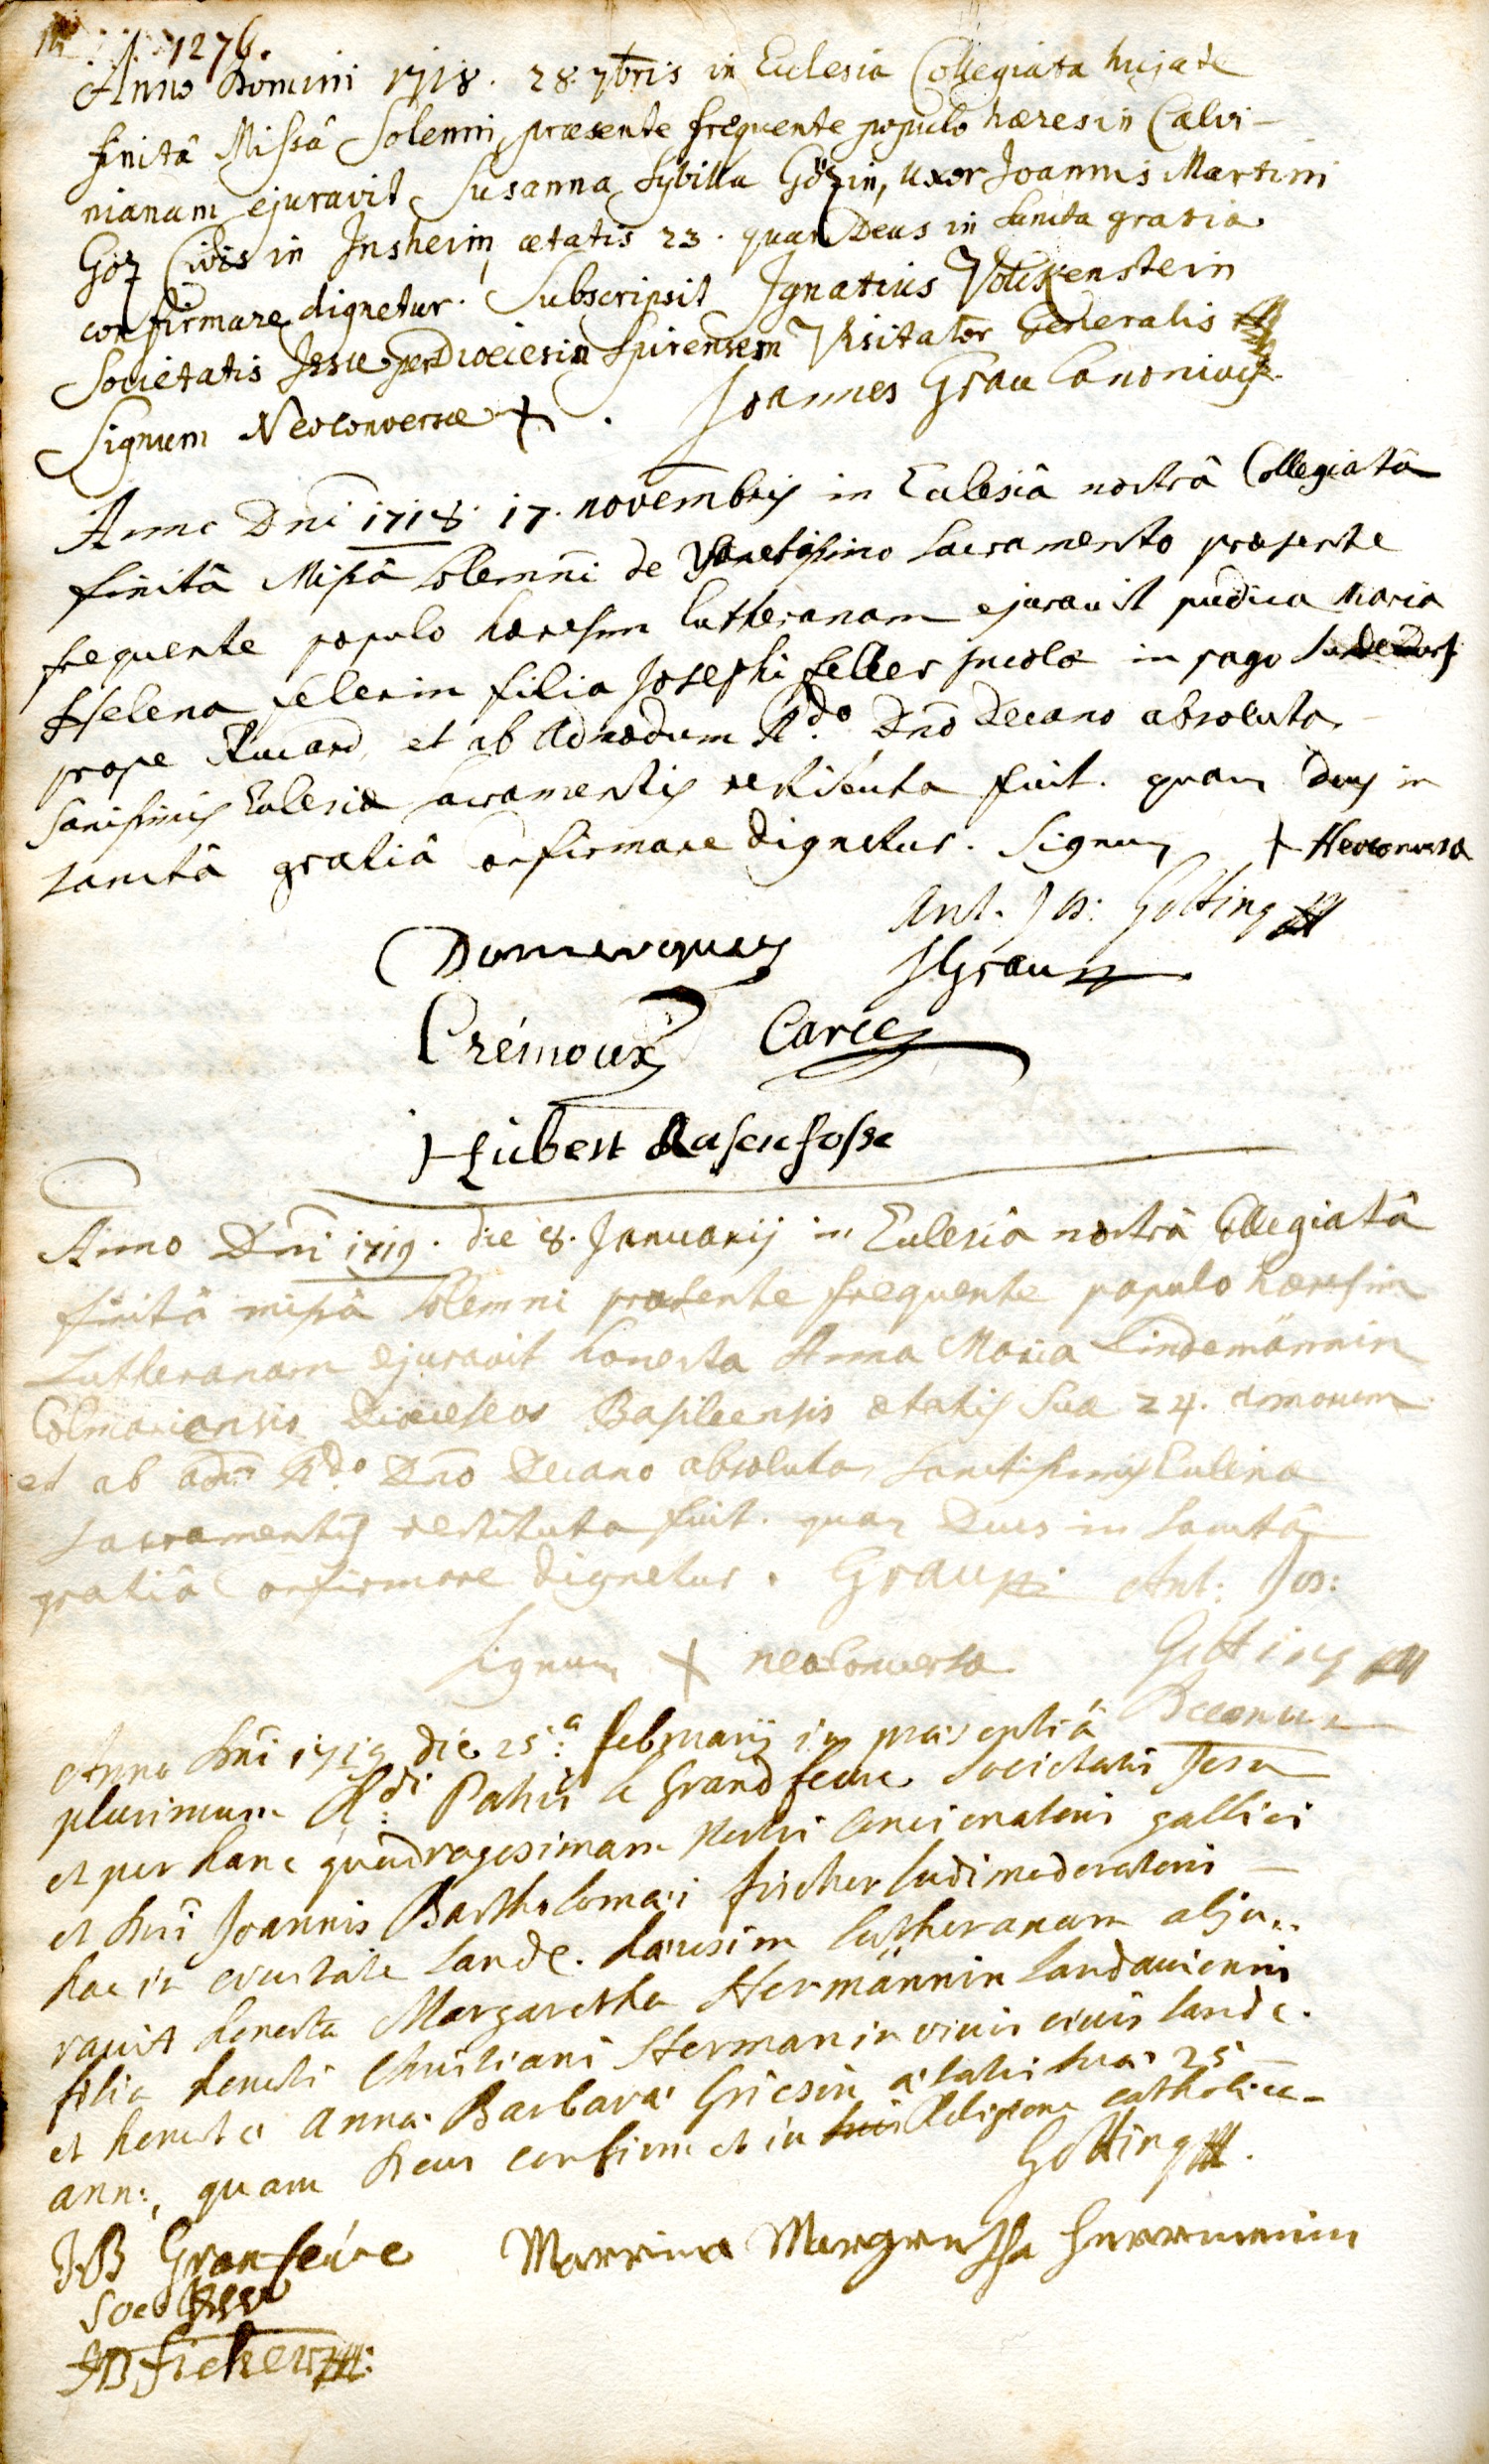 1276.
Anno Domini 1718. 28. 7bris in Eclesia Collegiata hujate
finitâ Missâ Solenni, præsente frequente populo hæresin Calvi-
nianam ejuravit Susanna Sybilla Gözin, uxor Joannis Martini
Göz Civis in Insheim, ætatis 23. quam Deus in Sancta gratia
confirmare dignetur. Subscripsit Ignatius Volckenstein
Societatis Jesu per Dioecesin Spirensem Visitator Generalis
Signum Neoconversæ + . Joannes Grau Canonicus
Anno Dni 1718. 17. novembris in Eclesiâ nostrâ Collegiatâ
finitâ Missâ solemni de Sanctissimo Sacramento præsente
frequente populo hæresim Lutheranam ejuravit pudica Maria
Helena felerin filia Josephi feller incolæ in pago
prope et ab Admodum Rdo. Dno Decano absoluta
Sanissimis Eclesiæ sacramentis restituta fuit. quam Deus in
sanctâ gratiâ confirmare dignetur. Signum + Neoconversa
Ant. Jos: Gotting
Domercques JGrau
Crémoux Carce
Hubert Rasenfosse
Anno Dni 1719. die 8. Januarij in Eclesiâ nostrâ Collegiatâ
finitâ missâ solemni præsente frequente populo hæresim
Lutheranam ejuravit honesta Anna Maria Lindemännin
Colmariensis Dioceseos Basileensis ætatis suæ 24. annorum
et ab adm Rdo. Dno Decano absoluta Sanctissimis Eclesiæ
Sacramentis restituta fuit. quam Deus in Sanctâ
gratiâ confirmare dignetur. Grau Ant: Jos:
Signum + neoconversa Gotting
Decanus
Anno Dni 1719 die 25a. februarij in præsentiâ
plurimum Rdi. Patris le Grandfevre Societatis Jesu
et per hanc quadragesimam nostri concionatoris gallici
et Dni Joannis Bartholomæi fischer ludimoderatoris —
hac in civitate Land. hæresim lutheranam abju..
ravit honesta Margaretha Hermännin Landaviensis
filia honesti Christiani Herman in vivis civis land.
et honestæ Annæ Barbaræ Griesin ætatis suæ 25
ann:, quam Deus confirmet in Religione catholica
Gotting.
JB Granfeívre Marrina Margretha Herrmenin
Soc Jesu
JBficher